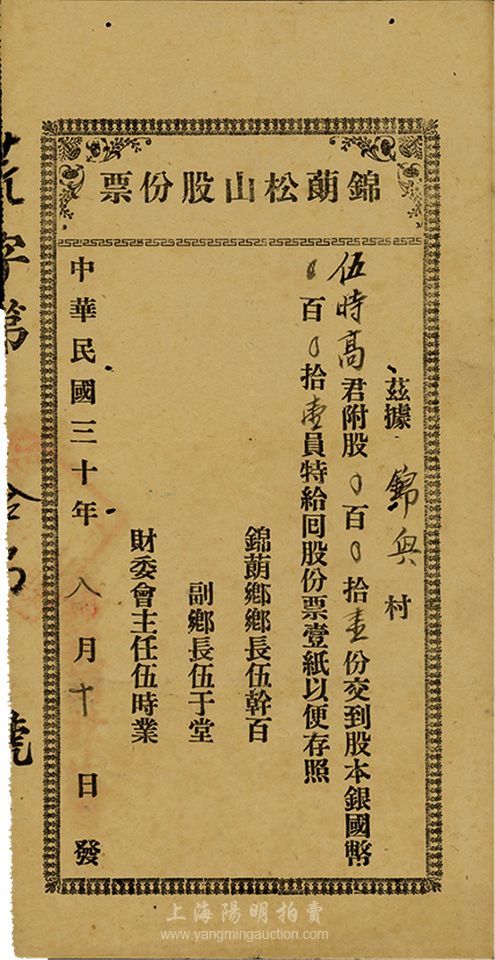 錦蓢松山股份票
茲據 錦興村
伍時高君附股〇百〇拾壹份交到股本銀國幣
〇百〇拾壹員特給囘股份票壹紙以便存照
錦蓢鄉鄉長伍幹百
副鄉長伍于堂
財委會主任伍時業
中華民國三十年八月十日發
字第
號
上海陽明拍賣
www.yangmingauction.com